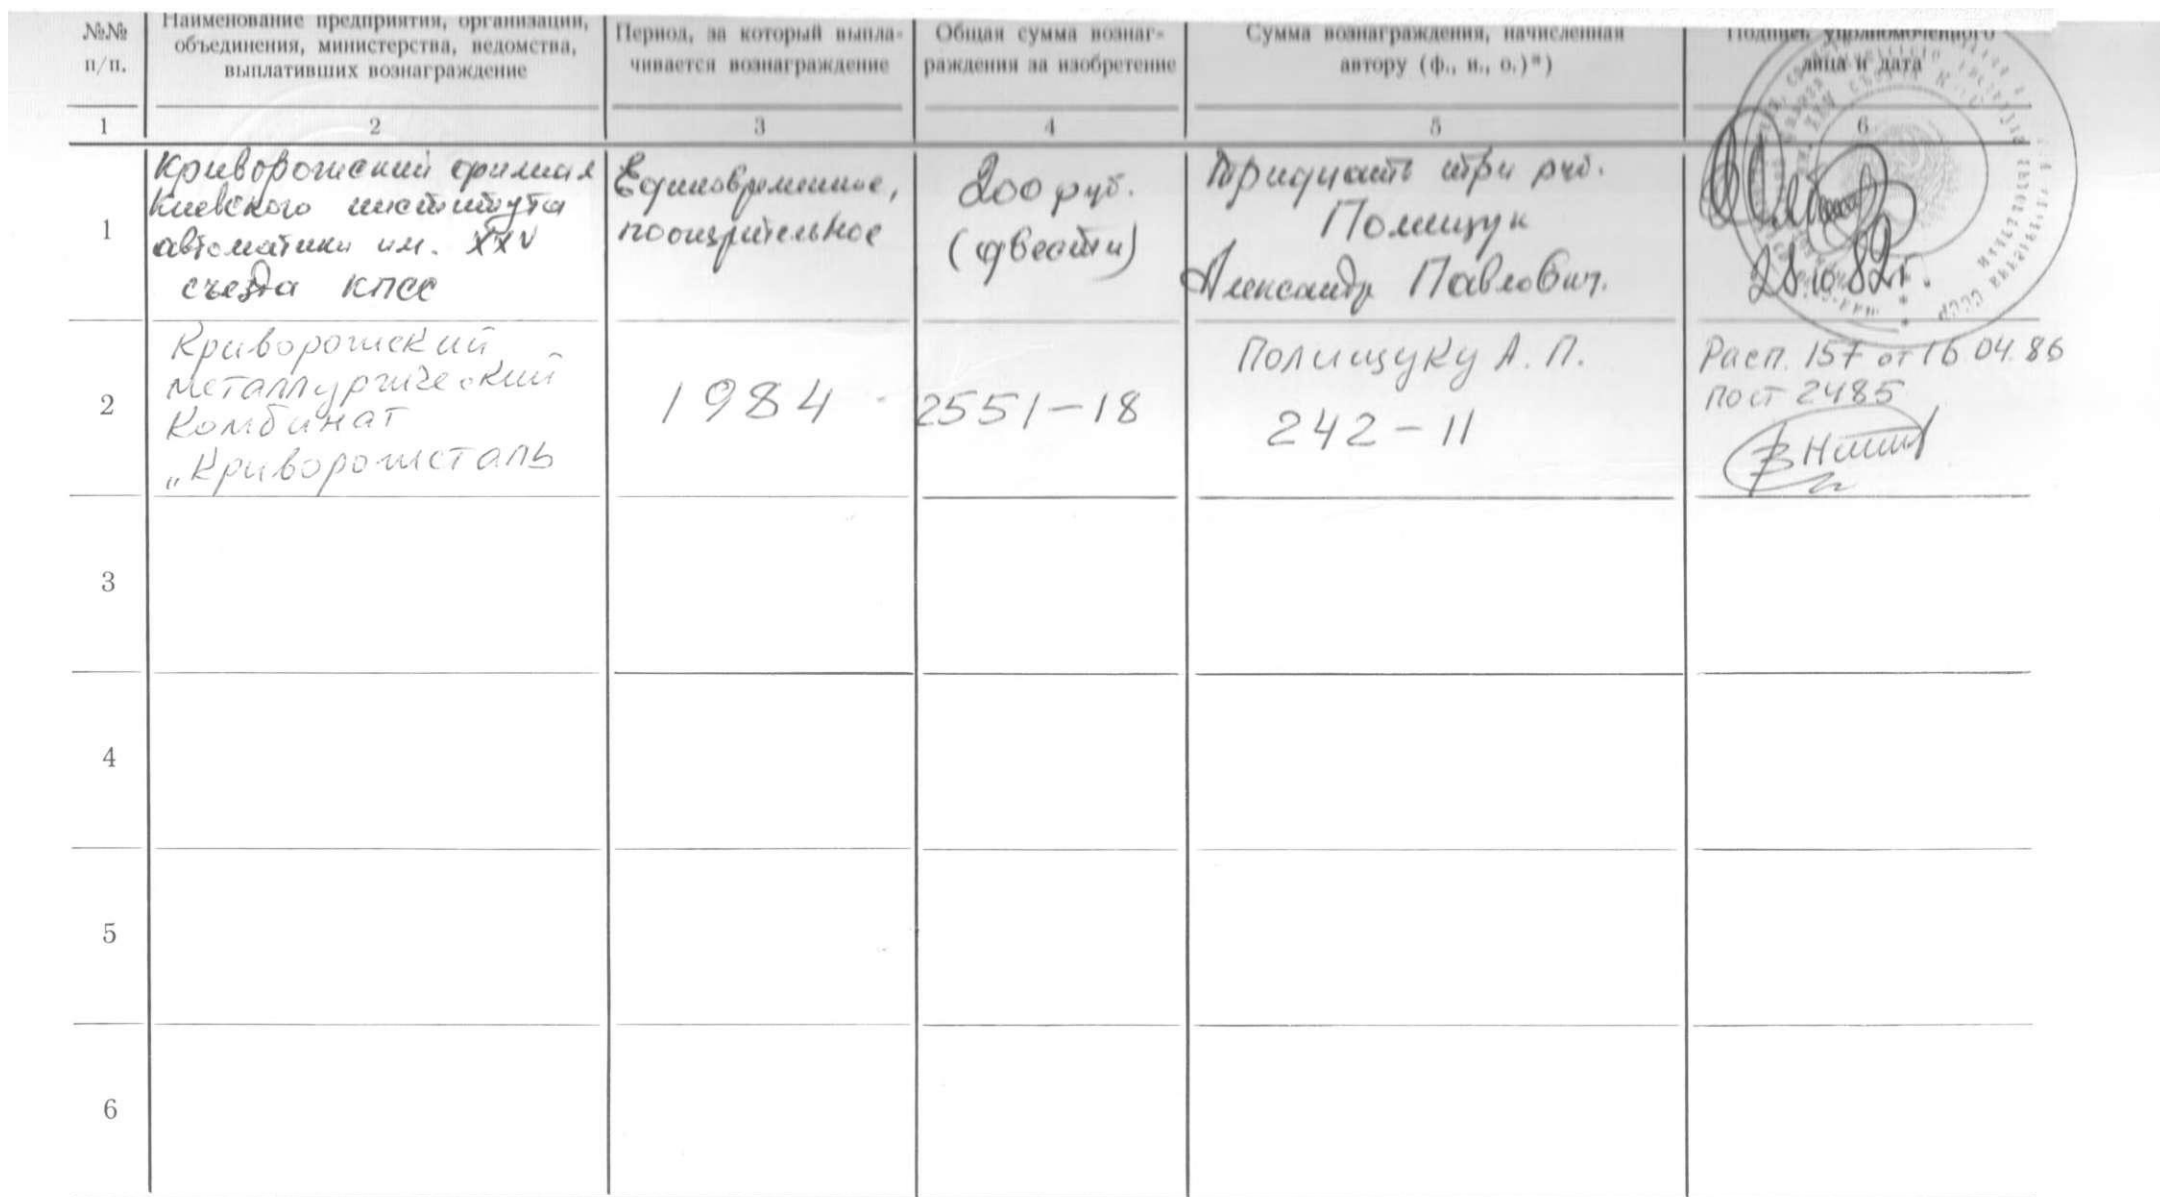 №№
п/п.
Наименование предприятия, организации,
объединения, министерства, ведомства,
выплативших вознаграждение
Период, за который выпла-
чивается вознаграждение
Общая сумма вознаг-
раждения за изобретение
Сумма вознаграждения, начисленная
автору (ф., и., о.)*)
Подпись уполномоченного
лица и дата
1 2 3 4 5 6
1
Криворожский филиал
Киевского института
автоматики им. XXV
съезда КПСС
Единовременное,
поощрительное
200 руб.
(двести)
Тридцать три руб.
Полищук
Александр Павлович.
28.10.82г.
2
Криворожский
металлургический
комбинат
„Криворожсталь
1984
2551-18
Полищуку А. П.
242-11
Расп. 157 от 16 04. 86
пост 2485
3
4
5
6